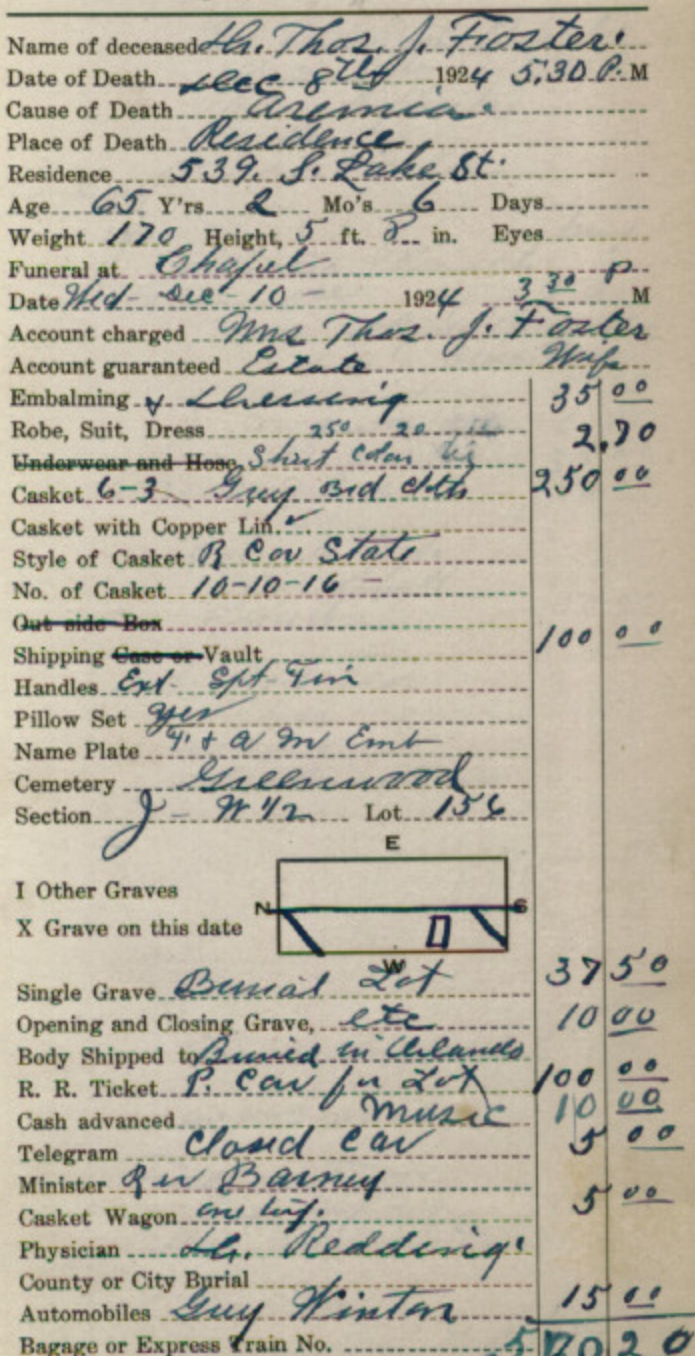 Name of deceased Dr. Thos. J. Foster.
Date of Death Dec 8th 1924 5.30 P. M
Cause of Death Uremia
Place of Death Residence
Residence 539. S. Lake St.
Age 65 Y'rs 2 Mo's 6 Days
Weight 170 Height, 5 ft. 8 in. Eyes
Funeral at Chapel
Date Wed- Dec-10- 1924 3 30 P M
Account charged Mrs Thos. J. Foster
Account guaranteed Estate Wife
Embalming & Dressing 35 00
Robe, Suit, Dress 250 20 2.70
Underwear and Hose, Shirt Colar tie
Casket 6-3 Grey Brd cloth 250 00
Casket with Copper Lin.
Style of Casket R Cov State
No. of Casket 10-10-16-
Out side Box
Shipping Case or Vault 100 00
Handles Ext-
Pillow Set yes
Name Plate F. & A M Emb
Cemetery Greenwood
Section J- W 1/2 Lot 156
E
I Other Graves
N S
X Grave on this date
W
Single Grave Burial Lot 37 50
Opening and Closing Grave, etc 10 00
Body Shipped to Buried in Orlando
R. R. Ticket P. Car for Lot 100 00
Cash advanced Music 10 00
Telegram Closed Car 5 00
Minister Rev Barney
Casket Wagon 5 00
Physician Dr. Redding.
County or City Burial
Automobiles Guy Winton 15 00
Bagage or Express Train No. 570 20